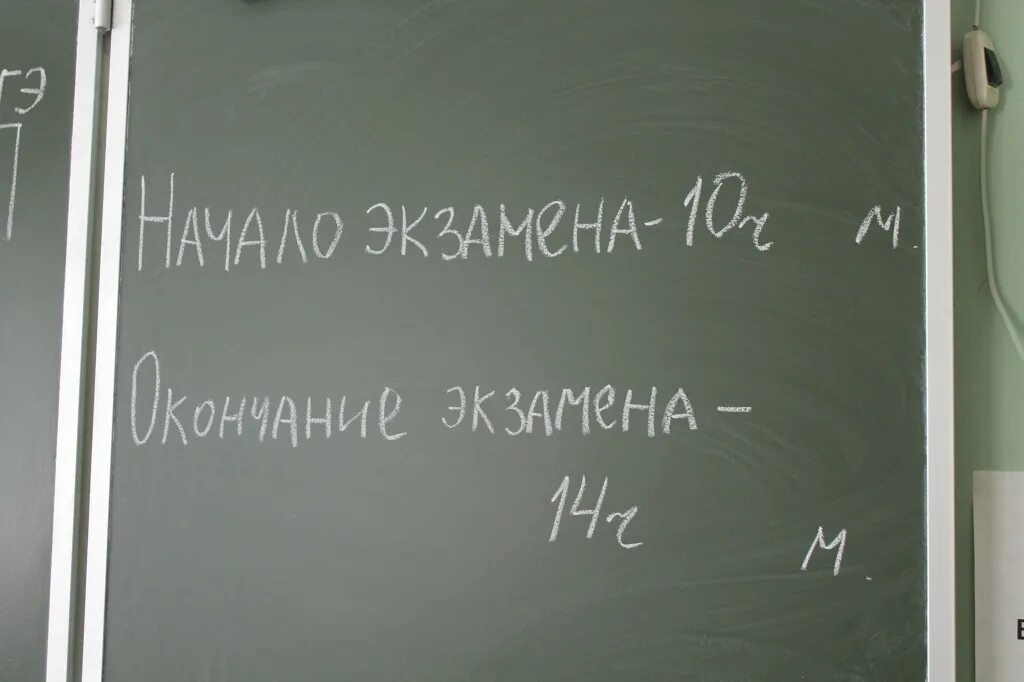 ГЭ
Начало экзамена - 10ч м.
Окончание экзамена -
14ч м.